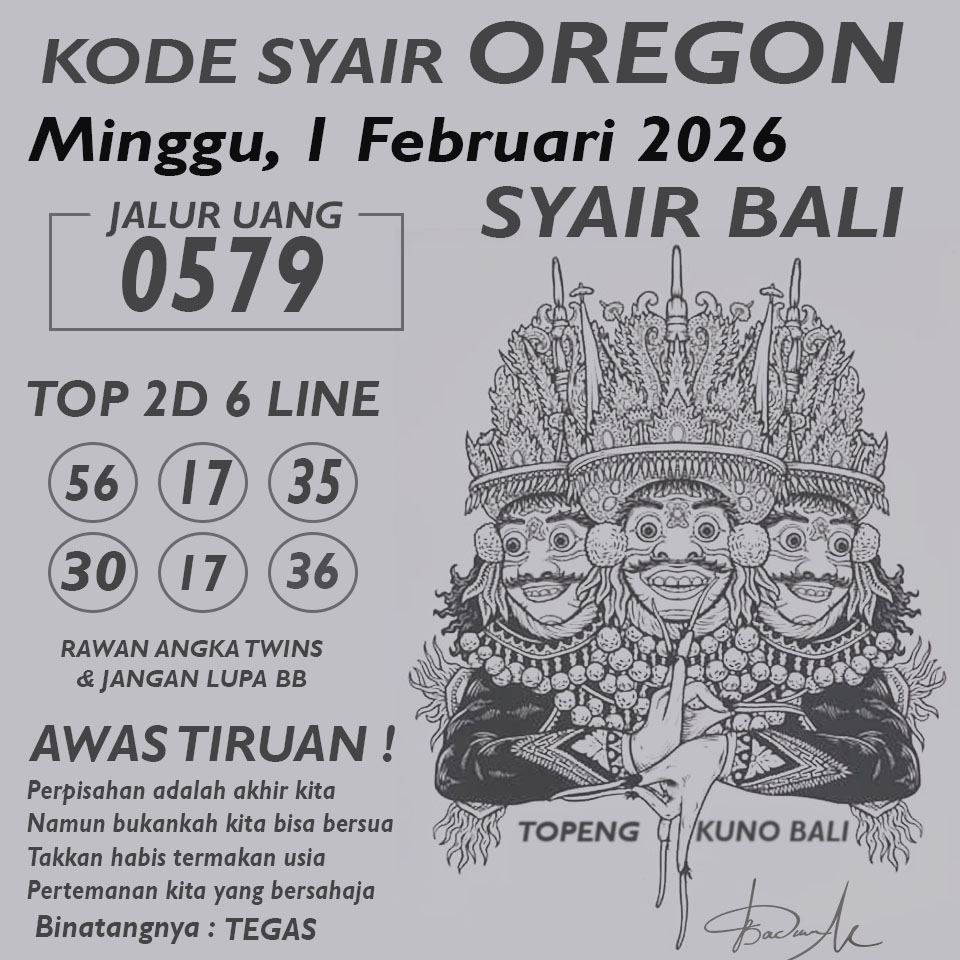 KODE SYAIR OREGON
Minggu, 1 Februari 2026
SYAIR BALI
JALUR UANG
0579
TOP 2D 6 LINE
56 17 35
30 17 36
RAWAN ANGKA TWINS
& JANGAN LUPA BB
AWAS TIRUAN !
Perpisahan adalah akhir kita
Namun bukankah kita bisa bersua
Takkan habis termakan usia
Pertemanan kita yang bersahaja
Binatangnya : TEGAS
TOPENG KUNO BALI